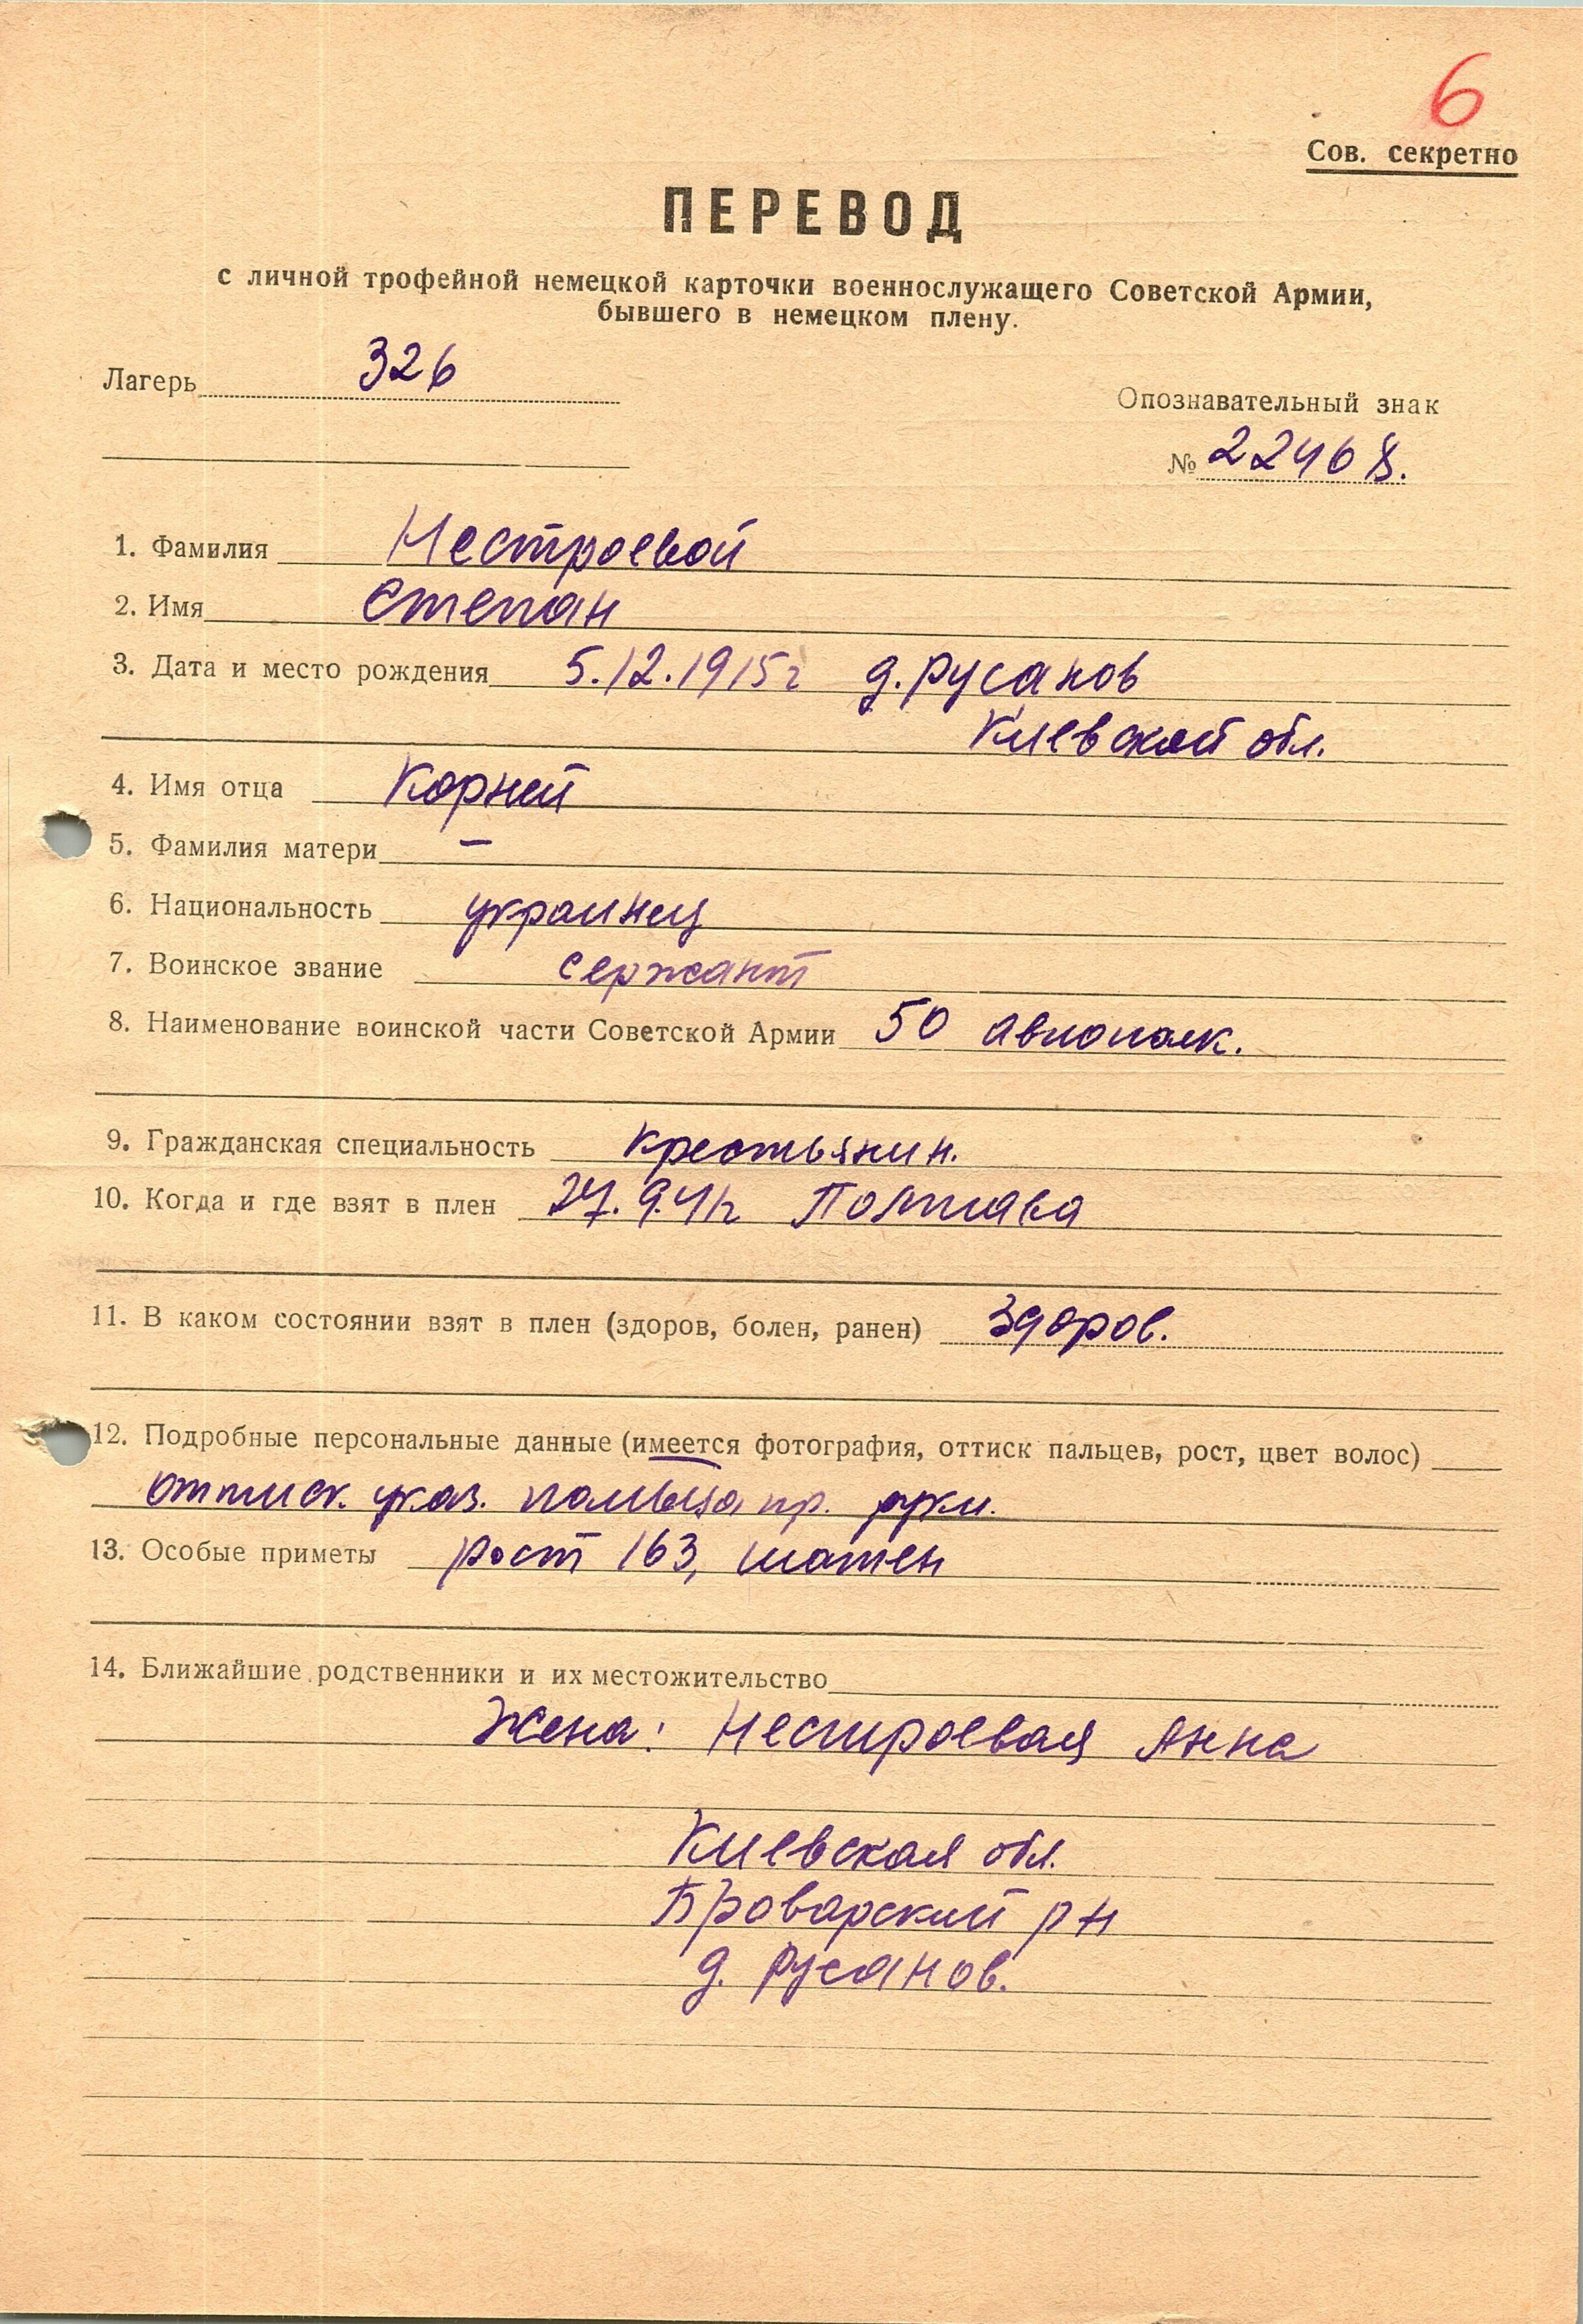 6
Сов. секретно
ПЕРЕВОД
с личной трофейной немецкой карточки военнослужащего Советской Армии,
бывшего в немецком плену.
Лагерь 326
Опознавательный знак
№ 22468.
1. Фамилия Нестроевой
2. Имя Степан
3. Дата и место рождения 5.12.1915г д. Русанов
Киевской обл.
4. Имя отца Корней
5. Фамилия матери —
6. Национальность украинец
7. Воинское звание сержант
8. Наименование воинской части Советской Армии 50 авиополк.
9. Гражданская специальность крестьянин.
10. Когда и где взят в плен 27.9.41г Полтава
11. В каком состоянии взят в плен (здоров, болен, ранен) Здоров.
12. Подробные персональные данные (имеется фотография, оттиск пальцев, рост, цвет волос)
оттиск. указ. пальца пр. руки.
13. Особые приметы рост 163, шатен
14. Ближайшие родственники и их местожительство
Жена: Нестроевая Анна
Киевская обл.
Броварский рн
д. Русанов.